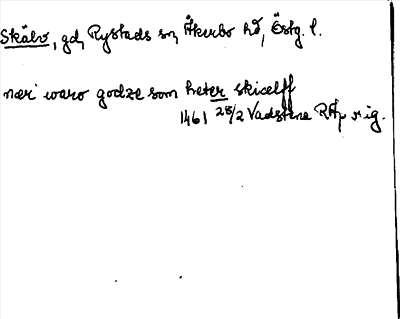 Skälv, gd, Rystads sn, Åkerbo hd, Östg. l.
nær waro godze som heter skicelff
1461 28/2 Vadstena RAp orig.